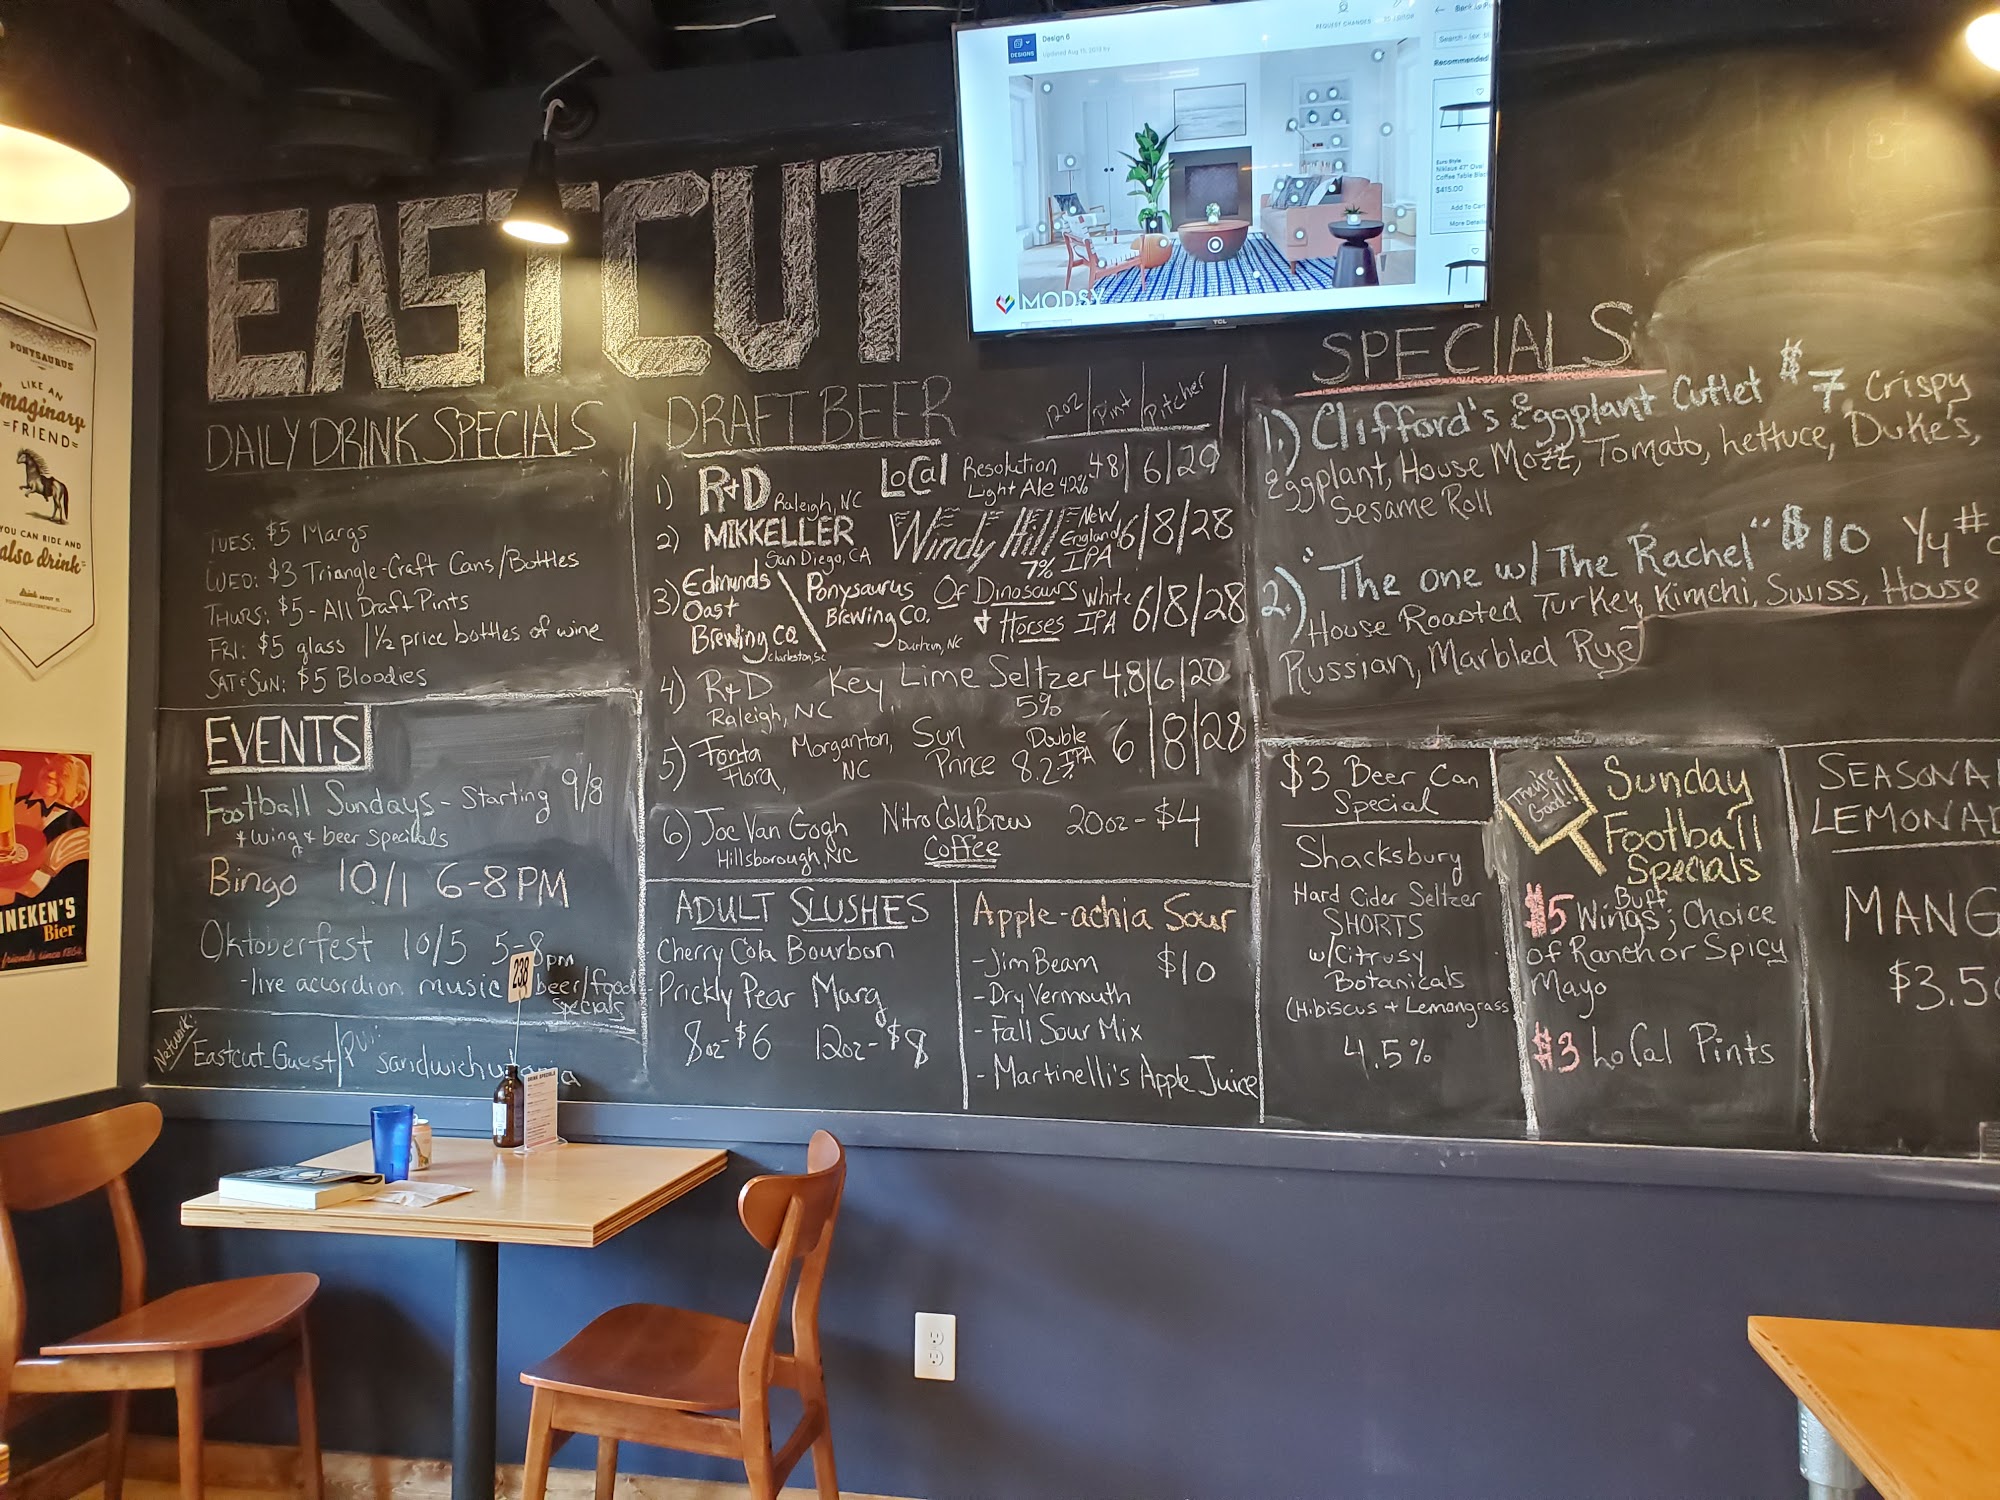 EASTCUT
DAILY DRINK SPECIALS
TUES: $5 Margs
WED: $3 Triangle-Craft Cans/Bottles
THURS: $5 - All Draft Pints
FRI: $5 glass / 1/2 price bottles of wine
SAT & SUN: $5 Bloodies
EVENTS
Football Sundays - Starting 9/8
+ wing & beer specials
Bingo 10/1 6-8 PM
Oktoberfest 10/5 5-8pm
-live accordion music beer/food
specials
Network:
Eastcut_Guest
238
DRAFT BEER
12oz | Pint | Pitcher
1) R&D Raleigh, NC LoCal Resolution
Light Ale 4.2% 4.8 | 6 | 20
2) MIKKELLER San Diego, CA Windy Hill New
England
IPA 7% 6 | 8 | 28
3) Edmunds
Oast
Brewing Co.
Charleston, SC
Ponysaurus
Brewing Co.
Durham, NC
Of Dinosaurs
+ Horses
White
IPA 6 | 8 | 28
4) R&D Key Lime Seltzer 4.8 | 6 | 20
Raleigh, NC 5%
5) Fonta
Flora, Morganton,
NC Sun
Prince Double
IPA
8.2% 6 | 8 | 28
6) Joe Van Gogh Nitro Cold Brew 20oz - $4
Hillsborough, NC Coffee
ADULT SLUSHES
Cherry Cola Bourbon
Prickly Pear Marg
8oz-$6 12oz-$8
Apple-achia Sour
- Jim Beam $10
- Dry Vermouth
- Fall Sour Mix
- Martinelli's Apple Juice
SPECIALS
1.) Clifford's Eggplant Cutlet $7 Crispy
Eggplant, House Mozz, Tomato, Lettuce, Duke's,
Sesame Roll
2.) "The one w/ The Rachel" $10
House Roasted Turkey, Kimchi, Swiss, House
Russian, Marbled Rye
$3 Beer Can
Special
Shacksbury
Hard Cider Seltzer
SHORTS
w/Citrusy
Botanicals
(Hibiscus + Lemongrass
4.5%
They're
Good!!
Sunday
Football
Specials
$5 Buff
Wings; Choice
of Ranch or Spicy
Mayo
$3 LoCal Pints
SEASONA
LEMONAD
MANG
$3.5
DESIGNS
Design 6
Updated Aug 15, 2019 by
REQUEST CHANGES
Recommended
Euro Style
Coffee Table
$415.00
Add To Car
More Details
MODSY
TCL
PONYSAURUS
LIKE AN
imaginary
=FRIEND=
YOU CAN RIDE AND
also drink
PONYSAURUSBREWING.COM
INEKEN'S
Bier
friends since 1864
DRINK SPECIALS